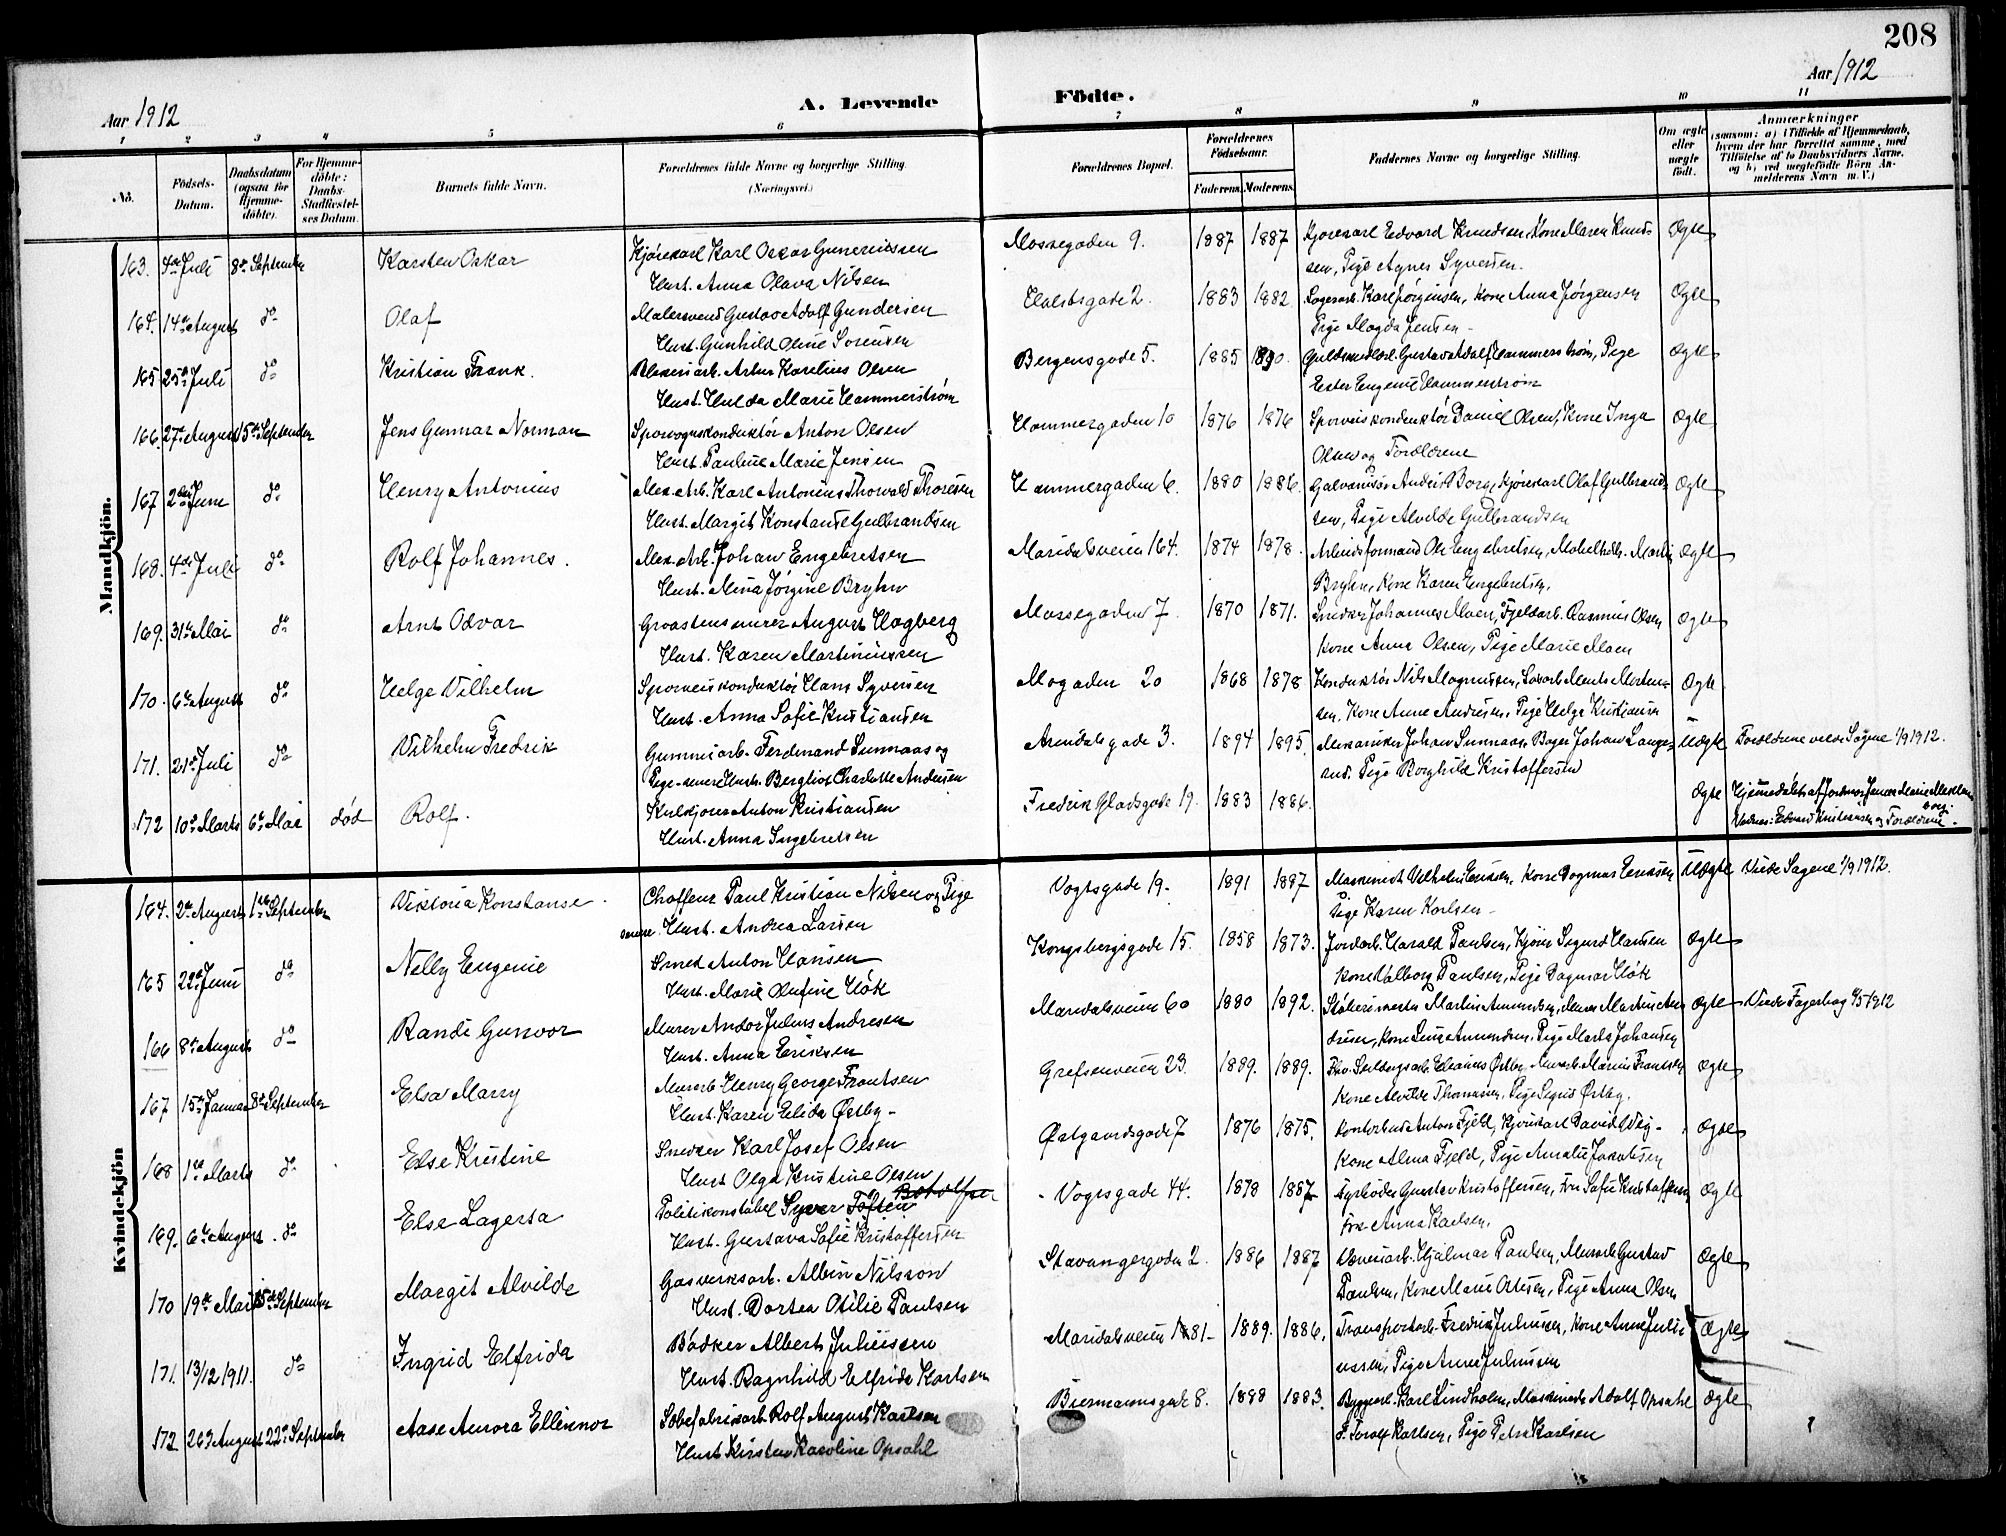 208
Aar 1912
A. Levende Födte.
Aar 1912
1 2 3 4 5 6 7 8 9 10 11
No.
Födsels-Datum.
Daabsdatum (ogsaa for Hjemmedöbte).
For Hjemmedöbte: Daabs-Stadfæstelses Datum.
Barnets fulde Navn.
Forældrenes fulde Navne og borgerlige Stilling (Næringsvei.)
Forældrenes Bopæl.
Forældrenes Födselsaar.
Faderens. Moderens.
Faddernes Navne og borgerlige Stilling.
Om ægte eller uægte födt.
Anmærkninger
(saasom: a) i Tilfælde af Hjemmedaab, hvem der har forrettet samme, med Tilföielse af to Daabsvidners Navne, og b) ved uægtefödte Börn Anmelderens Navn m. V.)
Mandkjön.
163. 4de Juli 8de September Karsten Oskar Kjørekarl Karl Oskar Gunerinssen Mossegaden 9. 1887 1887 Kjørekarl Edvard Knudsen, Kone Maren Knud- Ægte
Hust. Anna Olava Nilsen sen, Pige Agnes Syversen.
164. 14de August do Olaf Malersvend Gustav Adolf Gundersen 2. 1883 1882 Lagerarb. Karl Jørgensen, Kone Anna Jørgensen Ægte
Hust. Gunhild Oline Sørensen Pige Magda Jensen
165 25de Juli do Kristian Frank. Arthur Karelius Olsen Bergensgade 5. 1885 1890. Gustav Adolf Hammerstrøm, Pige Ægte
Hust. Hulda Marie Hammerstrøm Ester Eugenie Hammerstrøm
166. 27de August 15de September Jens Gunnar Norman Sporvognskonduktør Anton Olsen Hammergaden 10 1876 1876 Sporveiskonduktør Daniel Olsen, Kone Inga Ægte
Hust. Pauline Marie Jensen Olsen og Forældrene
167 2den Juni do Henry Antonius Mek. Arb. Karl Antonius Thorvald Thoresen Hammergaden 6. 1880 1886. Galvanisør Anders Borg, Kjørekarl Olaf Gulbrand- Ægte
Hust. Margit Konstanse Gulbrandsen sen, Pige Alvilde Gulbrandsen
168. 4de Juli do Rolf Johannes. Mek. Arb. Johan Engebretsen Maridalsveien 164. 1874 1878. Arbeidsformand Ole Engebretsen, Martin Ægte
Hust. Mina Jørgine Bryhn Bryhn, Kone Karen Engebretsen.
169. 31te Mai do Arnt Odvar Graastensmurer August Hagberg Mossegaden 7. 1870 1871. Snedker Johannes Moen, Fjeldarb. Rasmus Olsen Ægte
Hust. Karen Martiniussen Kone Anna Olsen, Pige Marie Moen
170. 6te August do Helge Vilhelm Sporveiskonduktør Hans Syversen Mogaden 20 1868 1878 Konduktør Nils Magnussen, Morten- Ægte
Hust. Anna Sofie Kristiansen sen, Kone Anne Andresen, Pige Helga Kristiansen
171. 21de Juli do Vilhelm Fredrik Gummiarb. Ferdinand Sunnaas og Arendalsgade 3. 1894 1895. Mekaniker Johan Sunnaas, Bager Johan Lange- Uægte Forældrene viede Sagene 1/9 1912.
Pige senere Hust. Bergliot Charlotte Andersen rud, Pige Borghild Kristoffersen
172 10de Marts 6te Mai død Rolf. Kulkjører Anton Kristiansen Fredrik Gladsgade 19. 1883 1886. Ægte Hjemmedøbt af Jordmor
Hust. Anna Ingebretsen Vidner: Edvard Kristiansen og Forældrene.
Kvindekjön
164. 2de August 1ste September Viktoria Konstanse Chaffeur Paul Kristian Nilsen og Pige Vogtsgade 19. 1891 1887 Maskinist Vilhelm Eriksen, Kone Dagmar Eriksen Uægte Viede Sagene 1/9 1912.
senere Hust. Andrea Larsen Pige Karen Karlsen
165 22de Juni do Nelly Eugenie Smed Anton Hansen Kongsbergsgade 15. 1858 1873. Jordarb. Harald Paulsen, Kjører Sigurd Hansen Ægte
Hust. Marie Olufine Høk Kone Valborg Paulsen, Pige Dagmar Høk
166 8de August do Randi Gunvor Murer Andor Julius Andresen Maridalsveien 60 1880 1892. Martin Amundsen, Murer Martin An- Ægte Viede Fagerborg 4/5 1912
Hust. Anna Eriksen dresen, Kone Amundsen, Pige Marta Johansen
167 15de Januar 8de September Elsa Marry Murarb. Henry George Frantsen Grefsenveien 23. 1889. 1889. Elevinus Østby, Murarb. Marius Frantsen Ægte
Hust. Karen Elida Østby Kone Alvilde Thomassen, Pige Sigrid Østby.
168 1ste Marts do Else Kristine Snedker Karl Josef Olsen Østgaardsgade 7 1876 1875. Kontorbud Anton Fjeld, Kjørekarl David Wig Ægte
Hust. Olga Kristine Olsen Kone Alma Fjeld, Pige Amalie Jakobsen
169. 6te August do Else Lagerta Politikonstabel Syver Toften Botolfsen Vogtsgade 44. 1878 1887 Fyrbøder Gustav Kristoffersen, Fru Sofie Kristoffersen Ægte
Hust. Gustava Sofie Kristoffersen Frk. Anna Karlsen.
170 19de Mai 15de September Margit Alvilde Gasverksarb. Albin Nilsson Stavangergaden 2. 1886 1887 Væveriarb. Hjalmar Paulsen, Murarb. Gustav Ægte
Hust. Dortea Otilie Paulsen Paulsen, Kone Marie Ottesen, Pige Anna Olsen
171. 13/12 1911. do Ingrid Elfrida Bødker Albert Juliussen Maridalsveien 181 1889. 1886. Transportarb. Fredrik Juliussen, Kone Anne Juli- Ægte
Hust. Ragnhild Elfrida Karlsen ussen, Pige Anna Juliussen
172 26de August 22de September Aase Aurora Ellinnor Rolf August Karlsen Biermannsgade 8. 1888 1883. Byggm. Karl Lindholm, Maskinarb. Adolf Opsahl Ægte
Hust. Kirsten Karoline Opsahl F. Toralf Karlsen, Pige Petra Karlsen